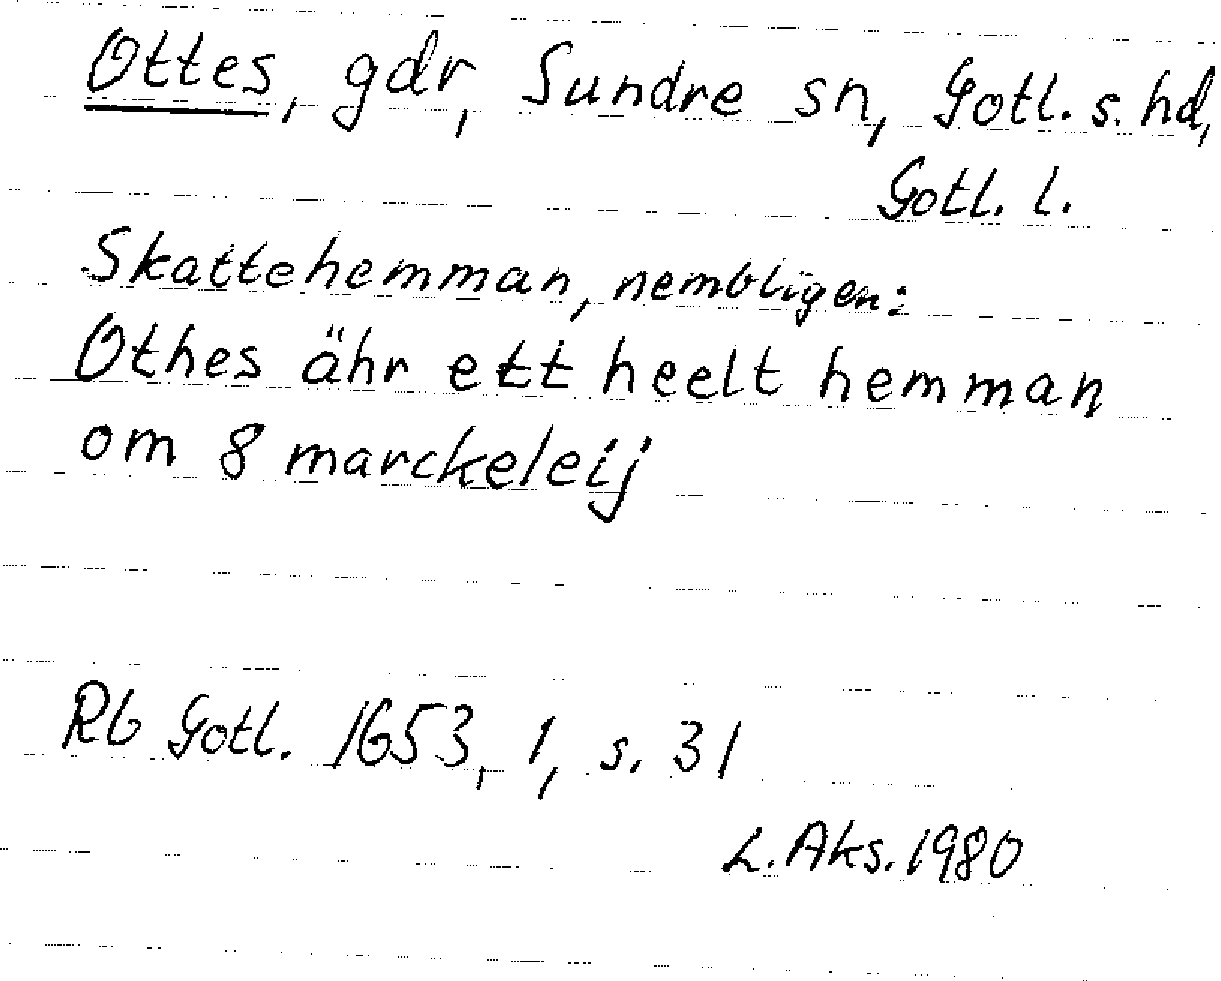 Ottes, gdr, Sundre sn, Gotl. s. hd,
Gotl. l.
Skattehemman, nembligen:
Othes ähr ett heelt hemman
om 8 marckeleij
Rb Gotl. 1653, 1, s. 31
L. Aks. 1980